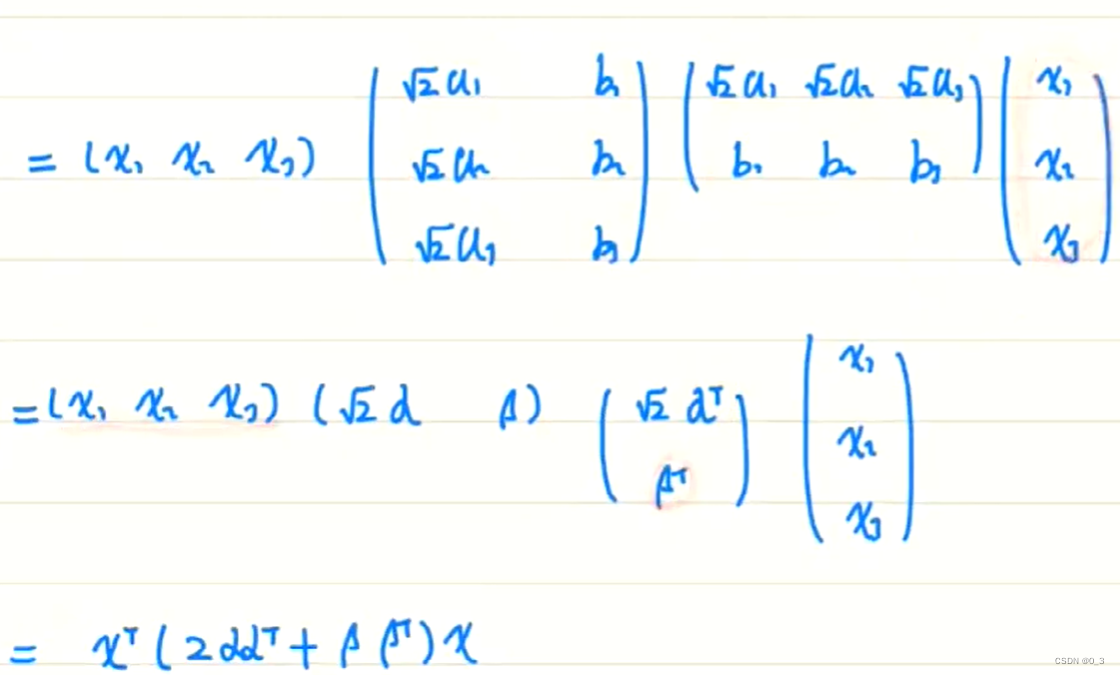 = (x₁ x₂ x₃) ( √2a₁ b₁ ; √2a₂ b₂ ; √2a₃ b₃ ) ( √2a₁ √2a₂ √2a₃ ; b₁ b₂ b₃ ) ( x₁ ; x₂ ; x₃ )
= (x₁ x₂ x₃) (√2 α β) ( √2 αᵀ ; βᵀ ) ( x₁ ; x₂ ; x₃ )
= xᵀ ( 2ααᵀ + ββᵀ ) x
CSDN @0_3